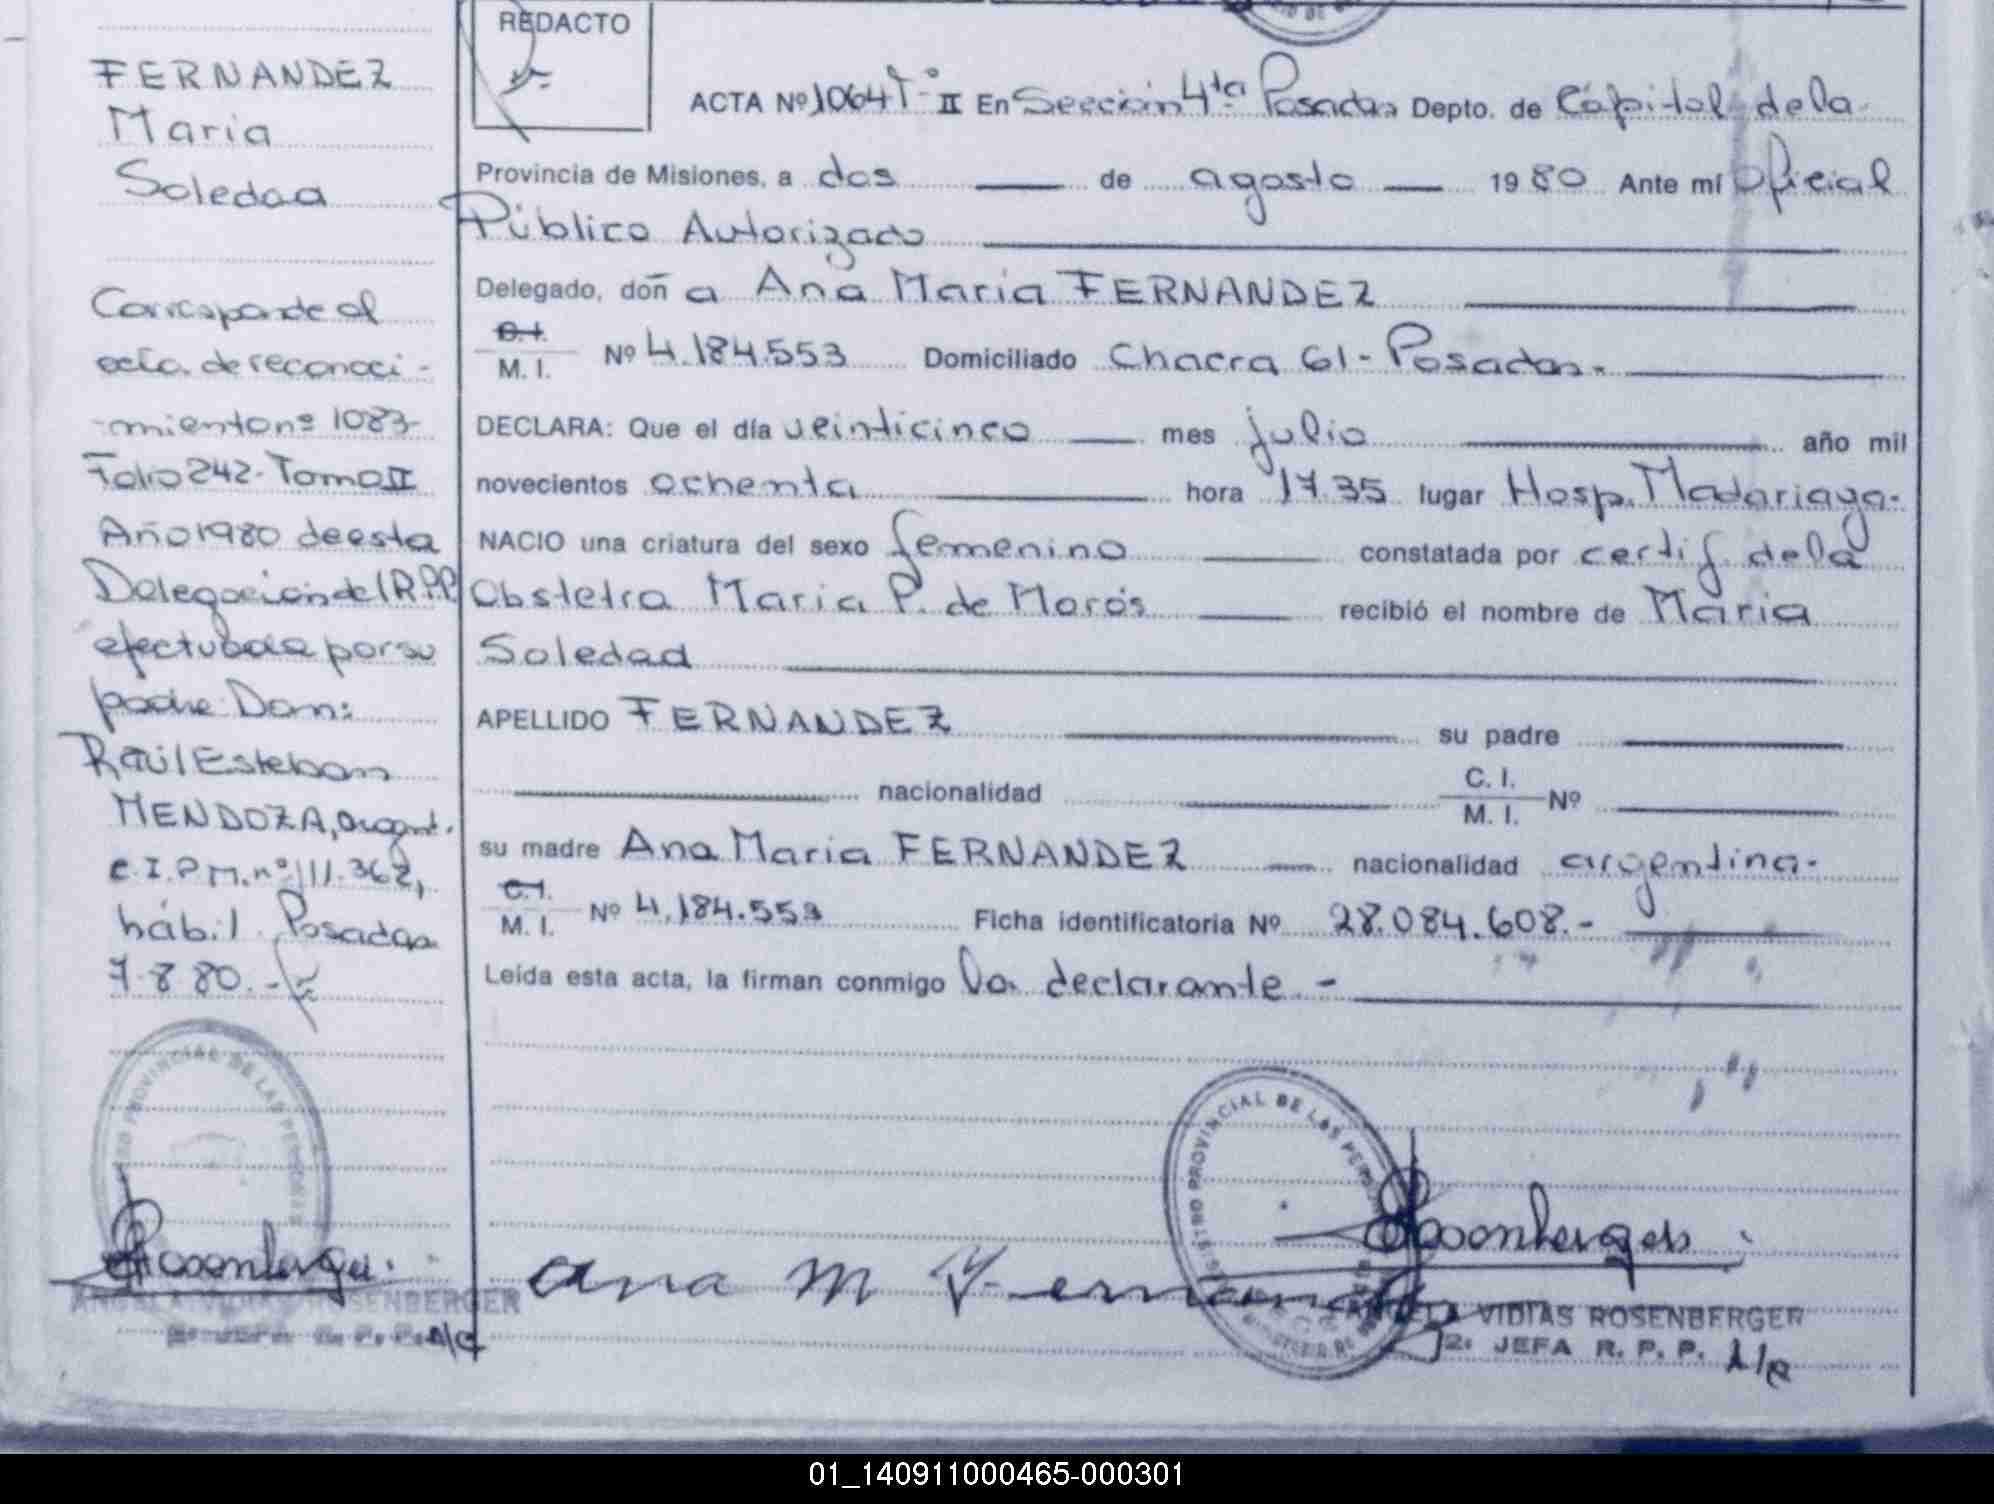 FERNANDEZ
Maria
Soledad
Corresponde al
acta de reconoci-
miento nº 1083-
Folio 242-Tomo II
Año 1980 de esta
Delegación del R.P.P.
efectuada por su
padre Don:
Raúl Esteban
MENDOZA, argent.
C.I.P.M. nº 111.362,
hábil. Posadas
7-8-80.-
REGISTRO PROVINCIAL DE LAS PERSONAS
Rosenberger
ANGELA VIDIAS ROSENBERGER
2º JEFA R. P. P. A/C
REDACTO
ACTA Nº 1064 Tº II En Sección 4ta Posadas Depto. de Capital de la
Provincia de Misiones, a dos de agosto 1980 Ante mí Oficial
Público Autorizado
Delegado, doña Ana Maria FERNANDEZ
C.I. / M. I. Nº 4.184.553 Domiciliado Chacra 61-Posadas.
DECLARA: Que el día veinticinco mes julio año mil
novecientos ochenta hora 17.35 lugar Hosp. Madariaga-
NACIO una criatura del sexo femenino constatada por certif. de la
Obstetra Maria P. de Morós recibió el nombre de Maria
Soledad
APELLIDO FERNANDEZ su padre
nacionalidad C. I. / M. I. Nº
su madre Ana Maria FERNANDEZ nacionalidad argentina-
C.I. / M. I. Nº 4.184.553 Ficha identificatoria Nº 28.084.608.-
Leída esta acta, la firman conmigo la declarante.-
REGISTRO PROVINCIAL DE LAS PERSONAS
Rosenberger
Ana M Fernandez
ANGELA VIDIAS ROSENBERGER
2º JEFA R. P. P. A/C
01_140911000465-000301